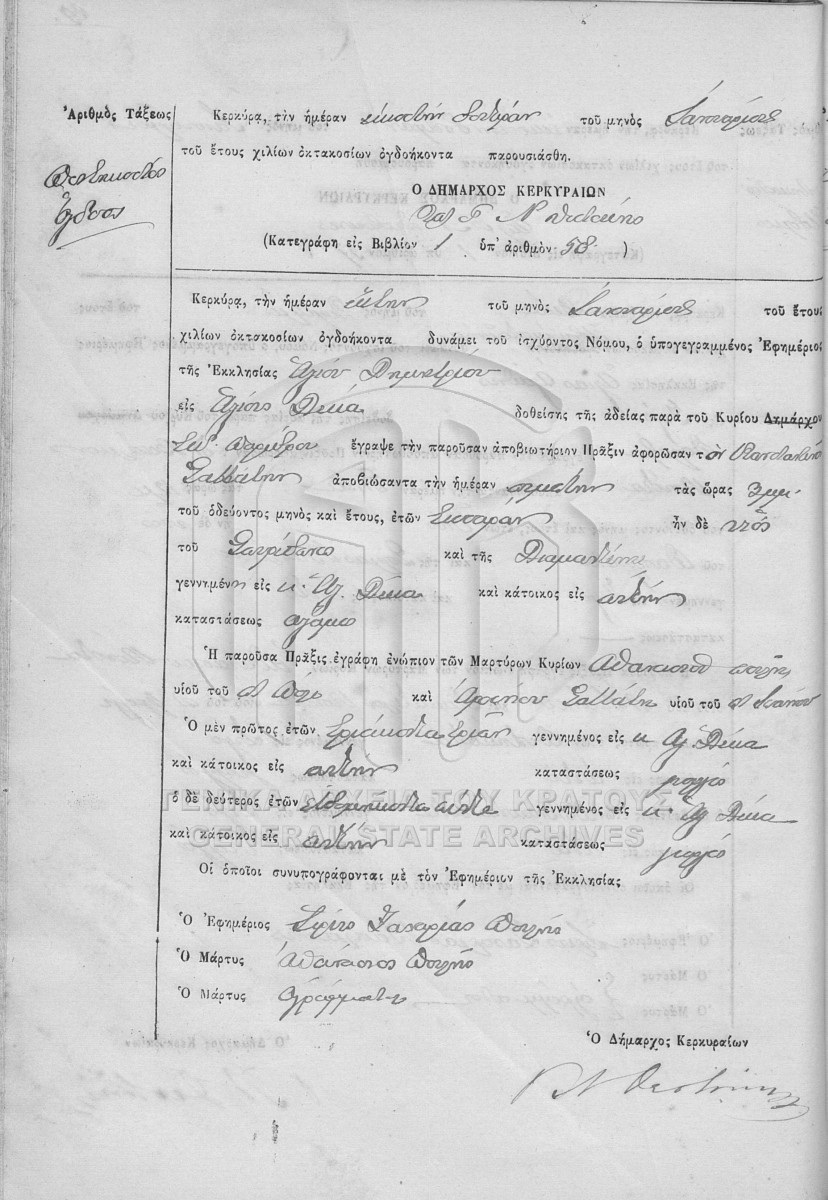 Ἀριθμὸς Τάξεως
Πεντηκοστὸς
ὄγδοος
Κερκύρα, τὴν ἡμέραν εἰκοστὴν τοῦ μηνὸς Ἰανουαρίου
τοῦ ἔτους χιλίων ὀκτακοσίων ὀγδοήκοντα παρουσιάσθη.
Ὁ ΔΗΜΑΡΧΟΣ ΚΕΡΚΥΡΑΙΩΝ
(Κατεγράφη εἰς Βιβλίον 1 ὑπ' ἀριθμὸν 58)
Κερκύρα, τὴν ἡμέραν ἕκτην τοῦ μηνὸς Ἰανουαρίου τοῦ ἔτους
χιλίων ὀκτακοσίων ὀγδοήκοντα δυνάμει τοῦ ἰσχύοντος Νόμου, ὁ ὑπογεγραμμένος Ἐφημέριος
τῆς Ἐκκλησίας Ἁγίου Δημητρίου
εἰς Ἁγίους Δέκα δοθείσης τῆς ἀδείας παρὰ τοῦ Κυρίου Δημάρχου
Εἰρ. Παρέδρου ἔγραψε τὴν παροῦσαν ἀποβιωτήριον Πρᾶξιν ἀφορῶσαν τὸν Κωνσταντῖνο
Σαββάνην ἀποβιώσαντα τὴν ἡμέραν πέμπτην τὰς ὥρας 3 μμ.
τοῦ ὁδεύοντος μηνὸς καὶ ἔτους, ἐτῶν ἦν δὲ υἱός
τοῦ Σπυρίδωνος καὶ τῆς Διαμαντίνης
γεννημένη εἰς κ. Ἁγ. Δέκα καὶ κάτοικος εἰς αὐτήν
καταστάσεως ἄγαμο
Ἡ παροῦσα Πρᾶξις ἐγράφη ἐνώπιον τῶν Μαρτύρων Κυρίων Ἀθανασίου
υἱοῦ τοῦ καὶ Ἀρσενίου Σαββάνη υἱοῦ τοῦ π Ἰωάννου
Ὁ μὲν πρῶτος ἐτῶν τριάκοντα τριῶν γεννημένος εἰς κ Ἁγ. Δέκα
καὶ κάτοικος εἰς αὐτήν καταστάσεως
ὁ δὲ δεύτερος ἐτῶν ἑβδομήκοντα πέντε γεννημένος εἰς κ. Ἁγ Δέκα
καὶ κάτοικος εἰς αὐτήν καταστάσεως
Οἱ ὁποῖοι συνυπογράφονται μὲ τὸν Ἐφημέριον τῆς Ἐκκλησίας
Ὁ Ἐφημέριος Ζαχαρίας
Ὁ Μάρτυς Ἀθανάσιος
Ὁ Μάρτυς ἀγράμματος
Ὁ Δήμαρχος Κερκυραίων
ΓΕΝΙΚΑ ΑΡΧΕΙΑ ΤΟΥ ΚΡΑΤΟΥΣ
GENERAL STATE ARCHIVES